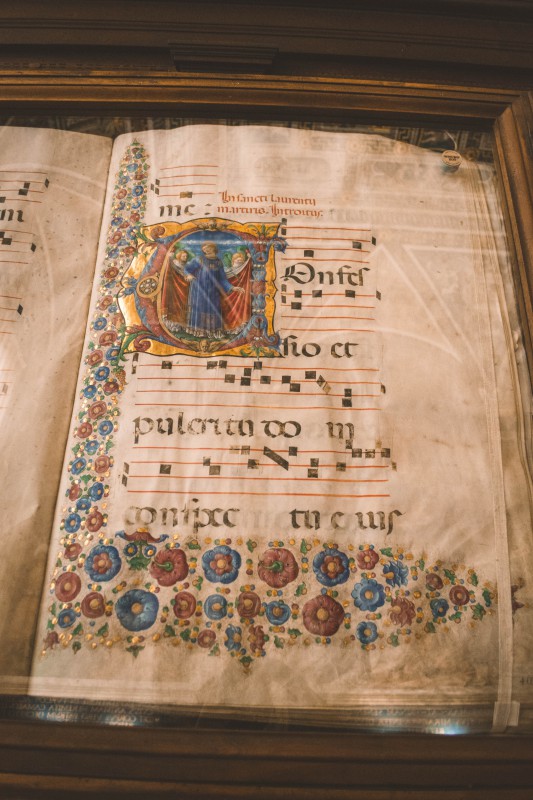 me : In sancti laurentii
martirio. Introitus.
COnfes
sio et
pulcritu do in
conspec tu e ius